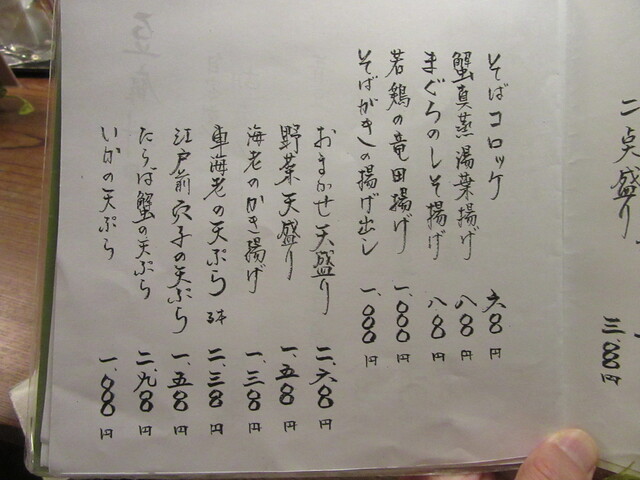 二点盛り 三、〇〇〇円
そばコロッケ 六〇〇円
蟹真蒸湯葉揚げ 八〇〇円
まぐろのしそ揚げ 八〇〇円
若鶏の竜田揚げ 一、〇〇〇円
そばがきの揚げ出し 一、〇〇〇円
おまかせ天盛り 二、六〇〇円
野菜天盛り 一、五〇〇円
海老のかき揚げ 一、三〇〇円
車海老の天ぷら 3本 二、三〇〇円
江戸前穴子の天ぷら 一、五〇〇円
たらば蟹の天ぷら 二、九〇〇円
いかの天ぷら 一、〇〇〇円